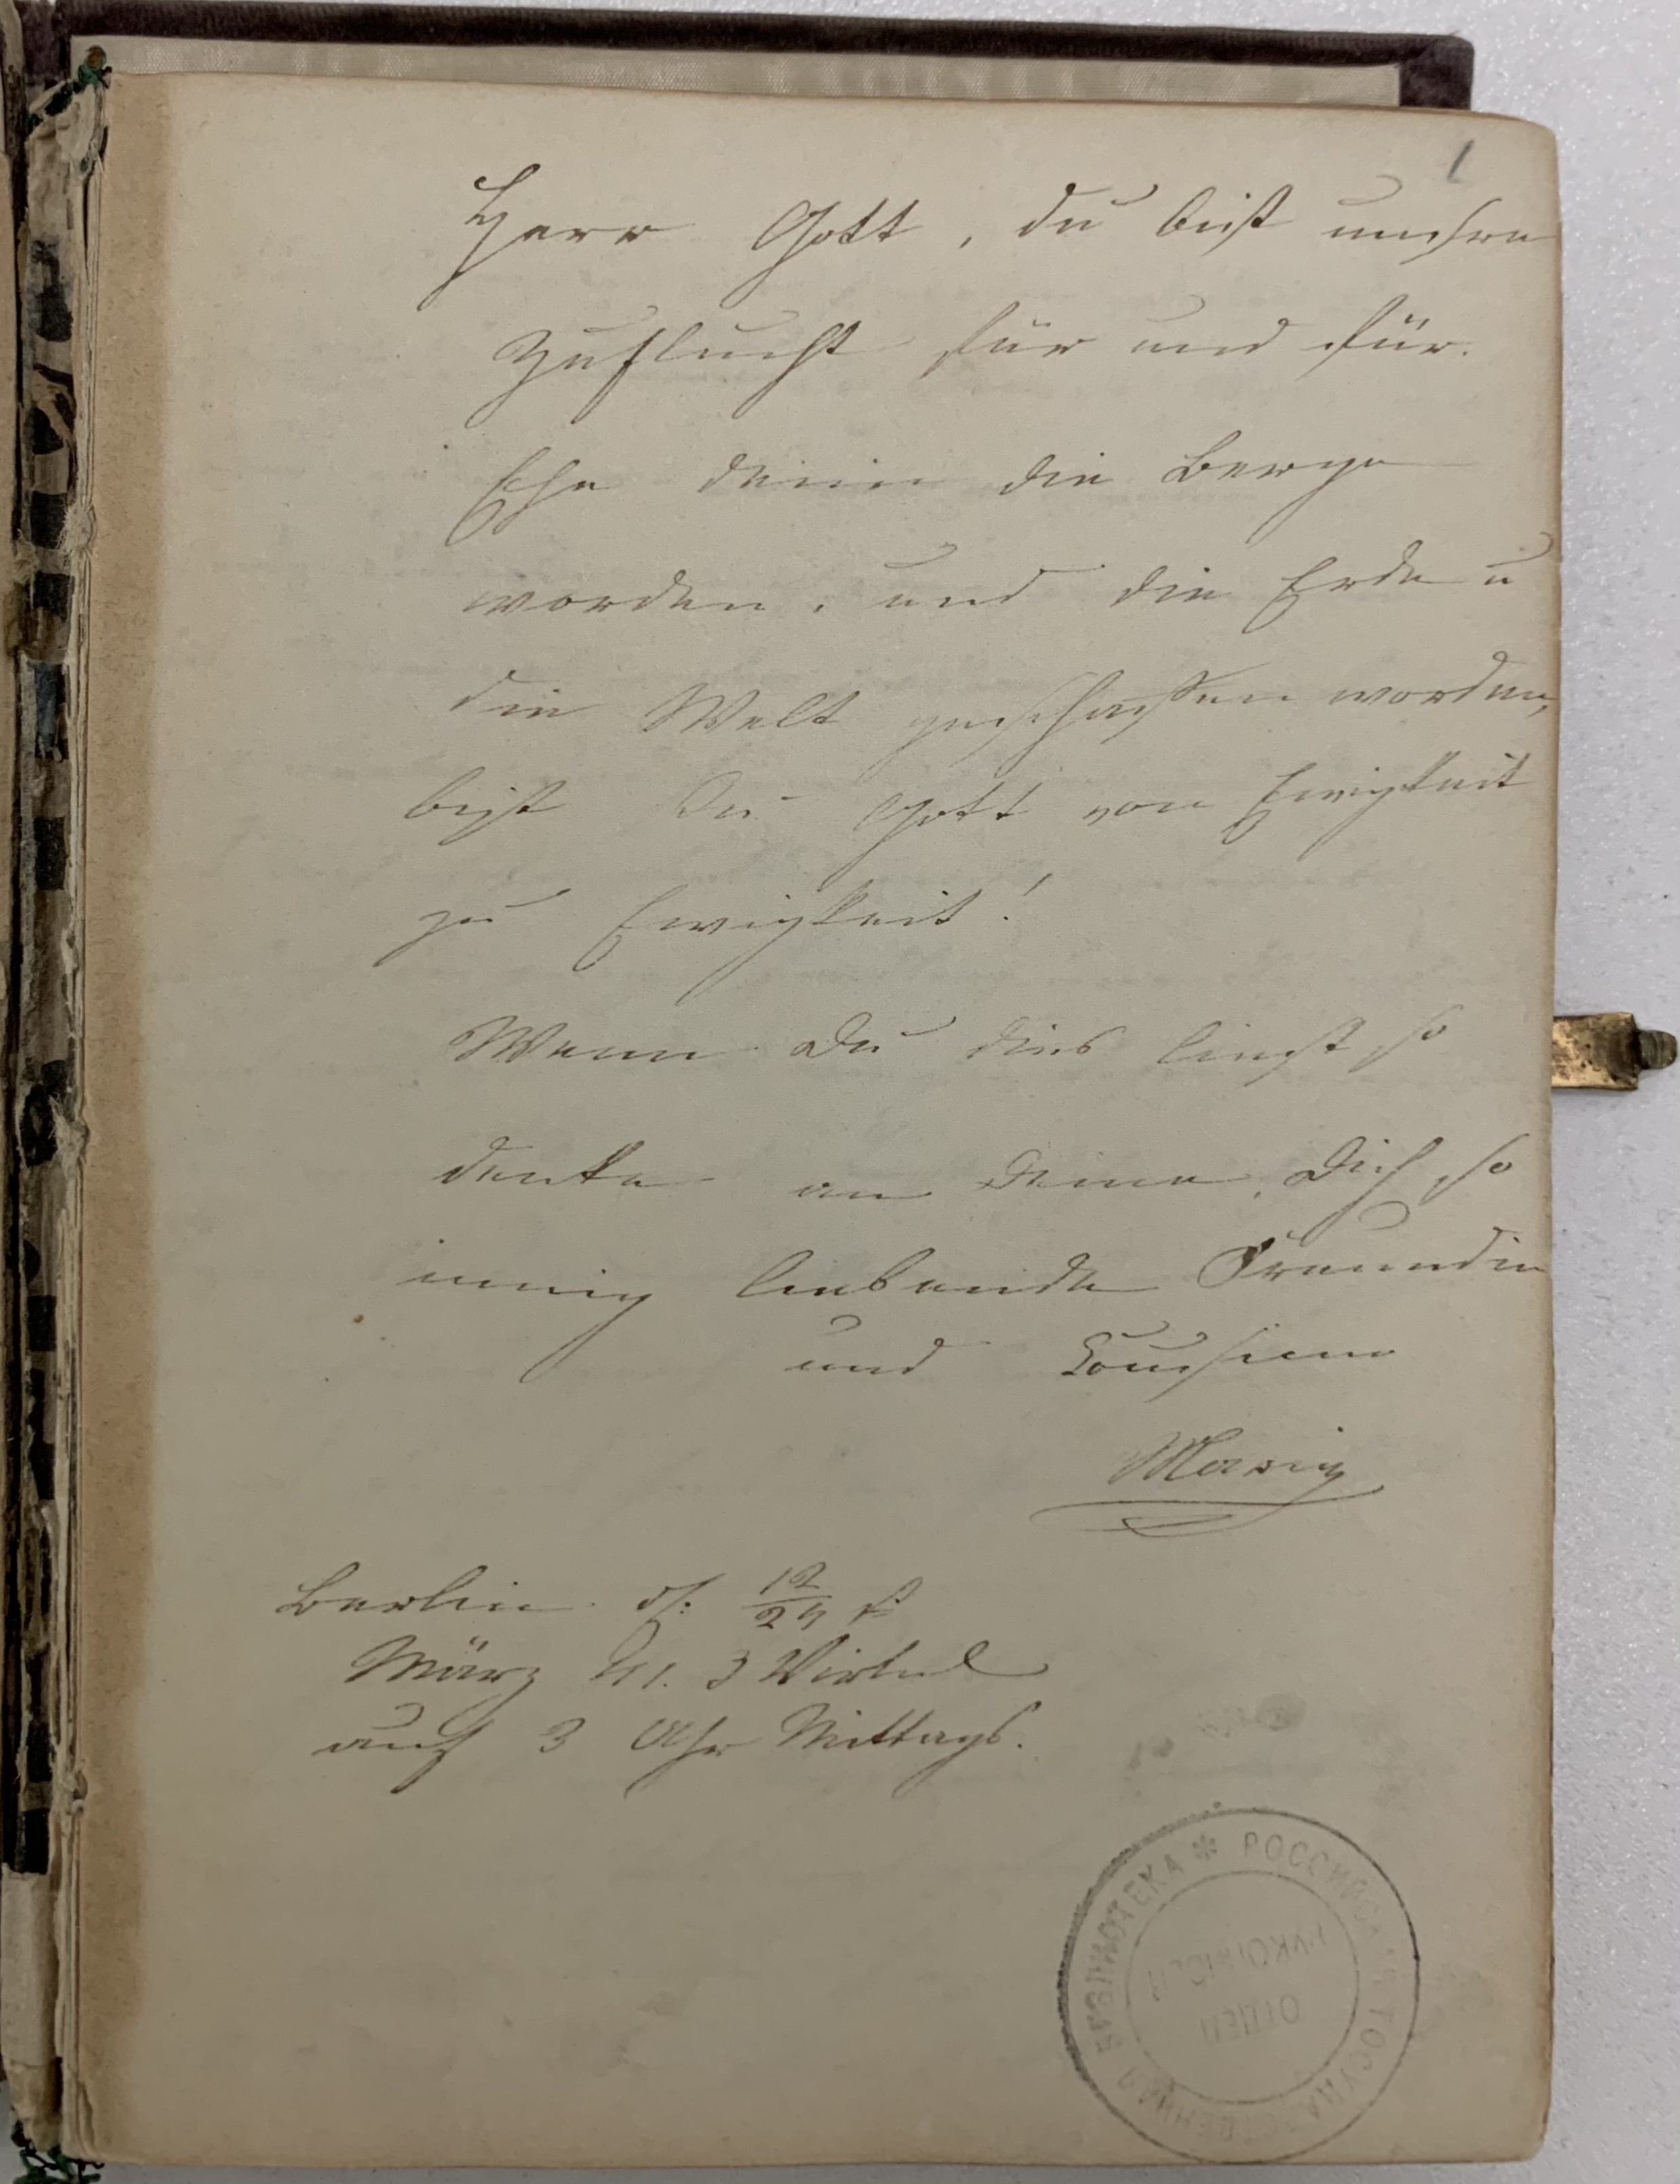 1
Herr Gott, du bist unsre
Zuflucht für und für.
Ehe denn die Berge
worden, und die Erde u
die Welt geschaffen worden,
bist Du Gott von Ewigkeit
zu Ewigkeit!
Wenn Du dies liest so
denke an Deine, Dich so
innig liebende Freundin
und Cousine
Berlin d. 12/24
März 41. 3 Virtel
auf 3 Uhr Mittags.
РОССИЙСКАЯ ГОСУДАРСТВЕННАЯ БИБЛИОТЕКА *
ОТДЕЛ
РУКОПИСЕЙ